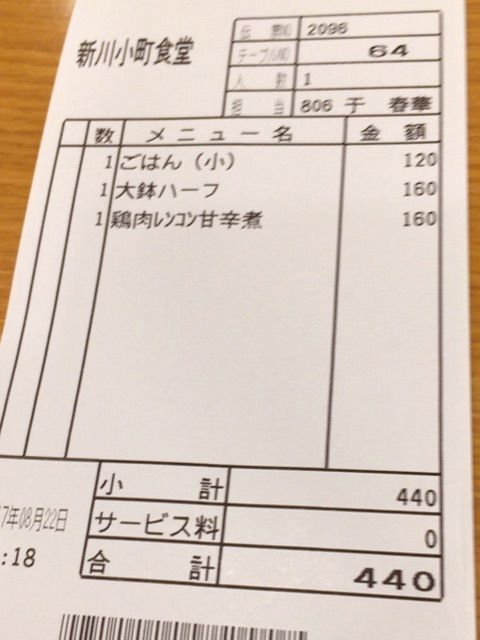 新川小町食堂
伝票NO 2096
テーブルNO 64
人数 1
担当 806 于 春華
数 メニュー名 金額
1 ごはん（小） 120
1 大鉢ハーフ 160
1 鶏肉ﾚﾝｺﾝ甘辛煮 160
小計 440
7年08月22日 サービス料 0
:18 合計 440